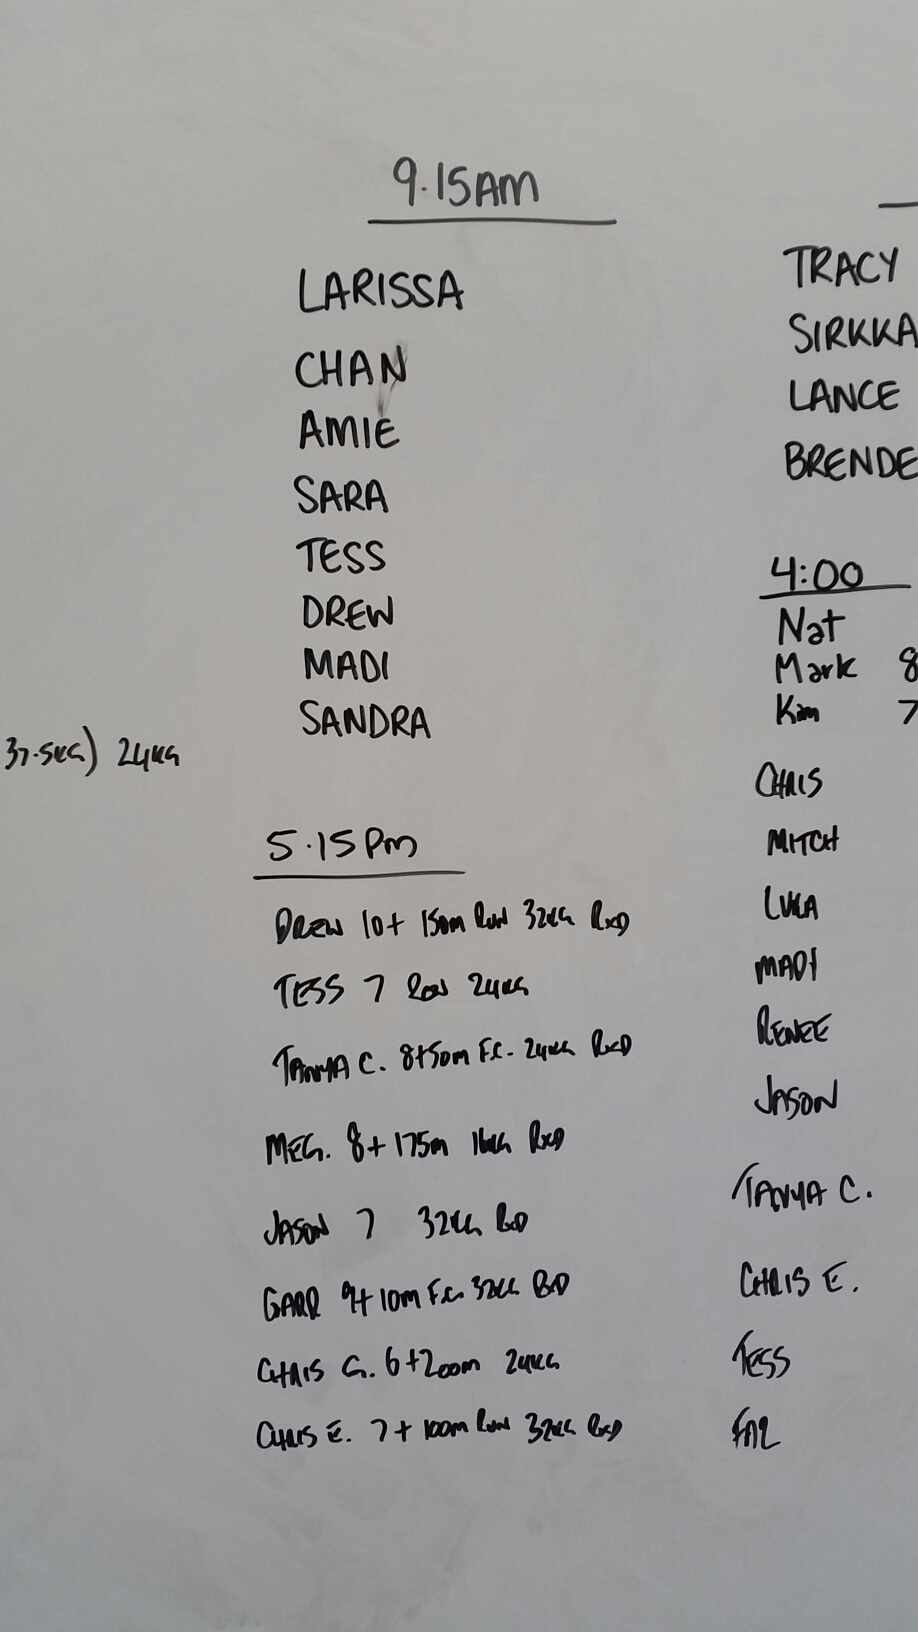 9.15AM
LARISSA
CHAN
AMIE
SARA
TESS
DREW
MADI
SANDRA
37.5KG) 24KG
5.15Pm
DREW 10+ 150m RUN 32KG RXD
TESS 7 ROW 24KG
TANYA C. 8+50m F.C. 24KG RXD
MEG. 8+175m 16KG RXD
JASON 7 32KG RXD
GARR 9+10m F.C. 32KG RXD
CHRIS G. 6+200m 24KG
CHRIS E. 7+100m RUN 32KG RXD
TRACY
SIRKKA
LANCE
BRENDE
4:00
Nat
Mark 8
Kim 7
CHRIS
MITCH
LUKA
MADI
RENEE
JASON
TANYA C.
CHRIS E.
TESS